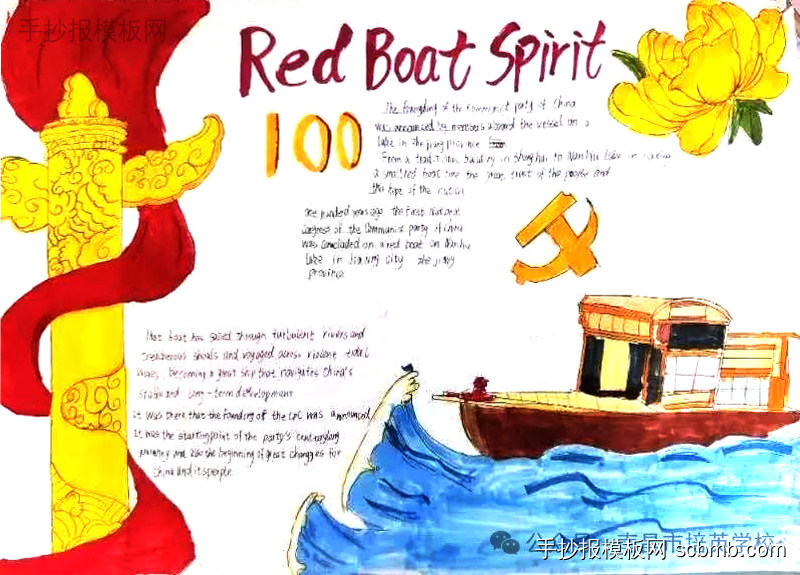 手抄报模板网
Red Boat Spirit
100
The founding of the Communist party of China
was announced by members aboard the vessel on a
lake in the jiang province
From a traditional building in Shanghai to Nanhu Lake in
a small red boat the trust of the people and
the hope of the nation
one hundred years ago the first National
congress of the Communist party of china
was concluded on a red boat on Nanhu
lake in Jiaxing city zhe jiang
province
that boat has sailed through turbulent rivers and
treacherous shoals and voyaged across violent tidal
waves, becoming a great ship that navigates China's
stable and long-term development
it was there that the founding of the CPC was announced
it was the starting point of the party's century long
journey and also the beginning of great changges for
china and its people
公众号 南昌市培英学校
手抄报模板网 sobmb.com